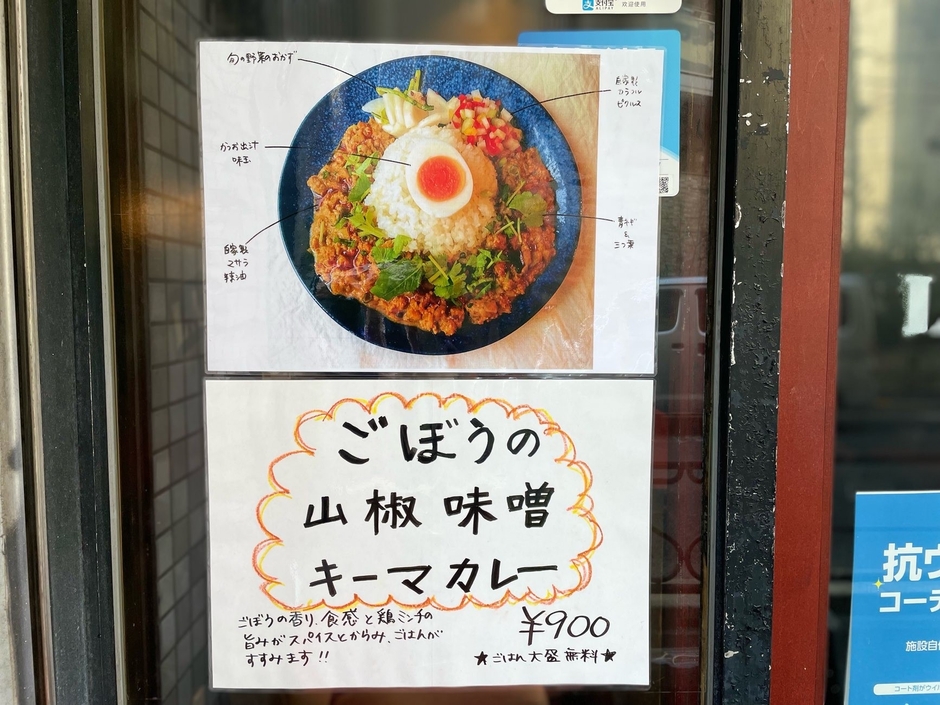 支付宝
ALIPAY
欢迎使用
旬の野菜のおかず
自家製
カラフル
ピクルス
かつお出汁
味玉
青ネギ
&
三つ葉
自家製
マサラ
辣油
ごぼうの
山椒味噌
キーマカレー
ごぼうの香り、食感と鶏ミンチの
旨みがスパイスとからみ、ごはんが
すすみます!!
¥900
★ごはん大盛無料★
抗ウ
コーテ
施設自
コート剤がウイ